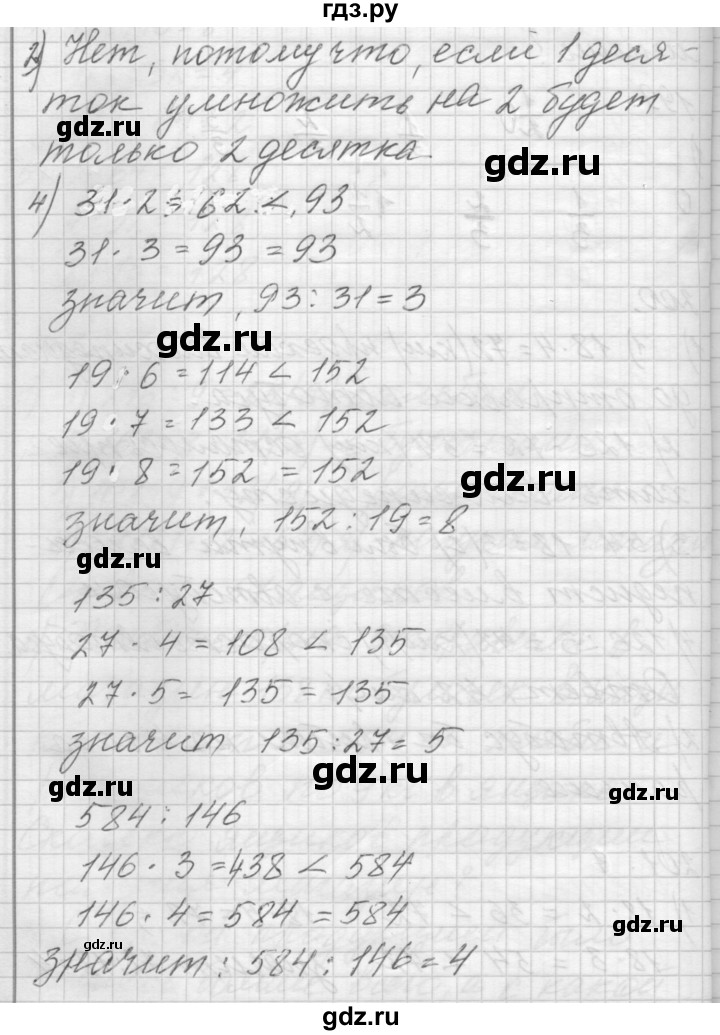 гдз.ру
2) Нет, потому что, если 1 деся-
ток умножить на 2 будет
gdz.ru
gdz.ru
только 2 десятка
gdz.ru
4) 31 · 2 = 62 < 93
31 · 3 = 93 = 93
значит, 93 : 31 = 3
gdz.ru
19 · 6 = 114 < 152
19 · 7 = 133 < 152
19 · 8 = 152 = 152
gdz.ru
значит, 152 : 19 = 8
gdz.ru
135 : 27
27 · 4 = 108 < 135
27 · 5 = 135 = 135
значит 135 : 27 = 5
gdz.ru
gdz.ru
gdz.ru
584 : 146
146 · 3 = 438 < 584
146 · 4 = 584 = 584
gdz.ru
gdz.ru
значит : 584 : 146 = 4
gdz.ru